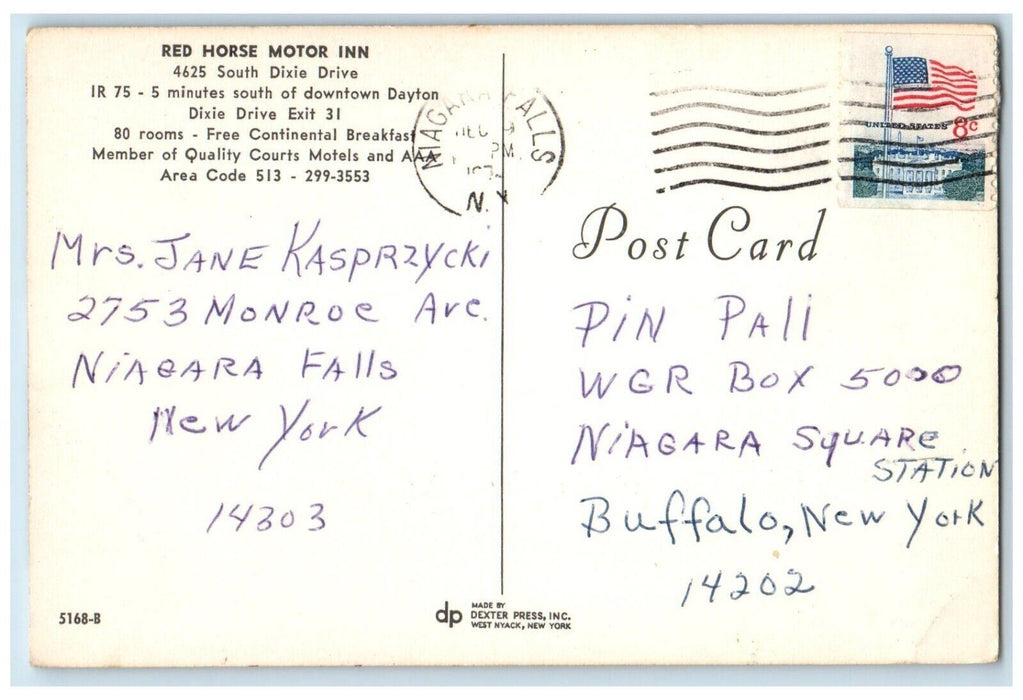 RED HORSE MOTOR INN
4625 South Dixie Drive
IR 75 - 5 minutes south of downtown Dayton
Dixie Drive Exit 31
80 rooms - Free Continental Breakfast
Member of Quality Courts Motels and AAA
Area Code 513 - 299-3553
NIAGARA FALLS
PM
N.Y
UNITED STATES 8c
Post Card
Mrs. JANE KASPRZYCKi
2753 MONROe Ave.
NiAGARA FAlls
New York
14303
PiN PAll
WGR BOX 5000
NiAGARA SQUARE
STATION
Buffalo, New York
14202
5168-B
dp
MADE BY
DEXTER PRESS, INC.
WEST NYACK, NEW YORK